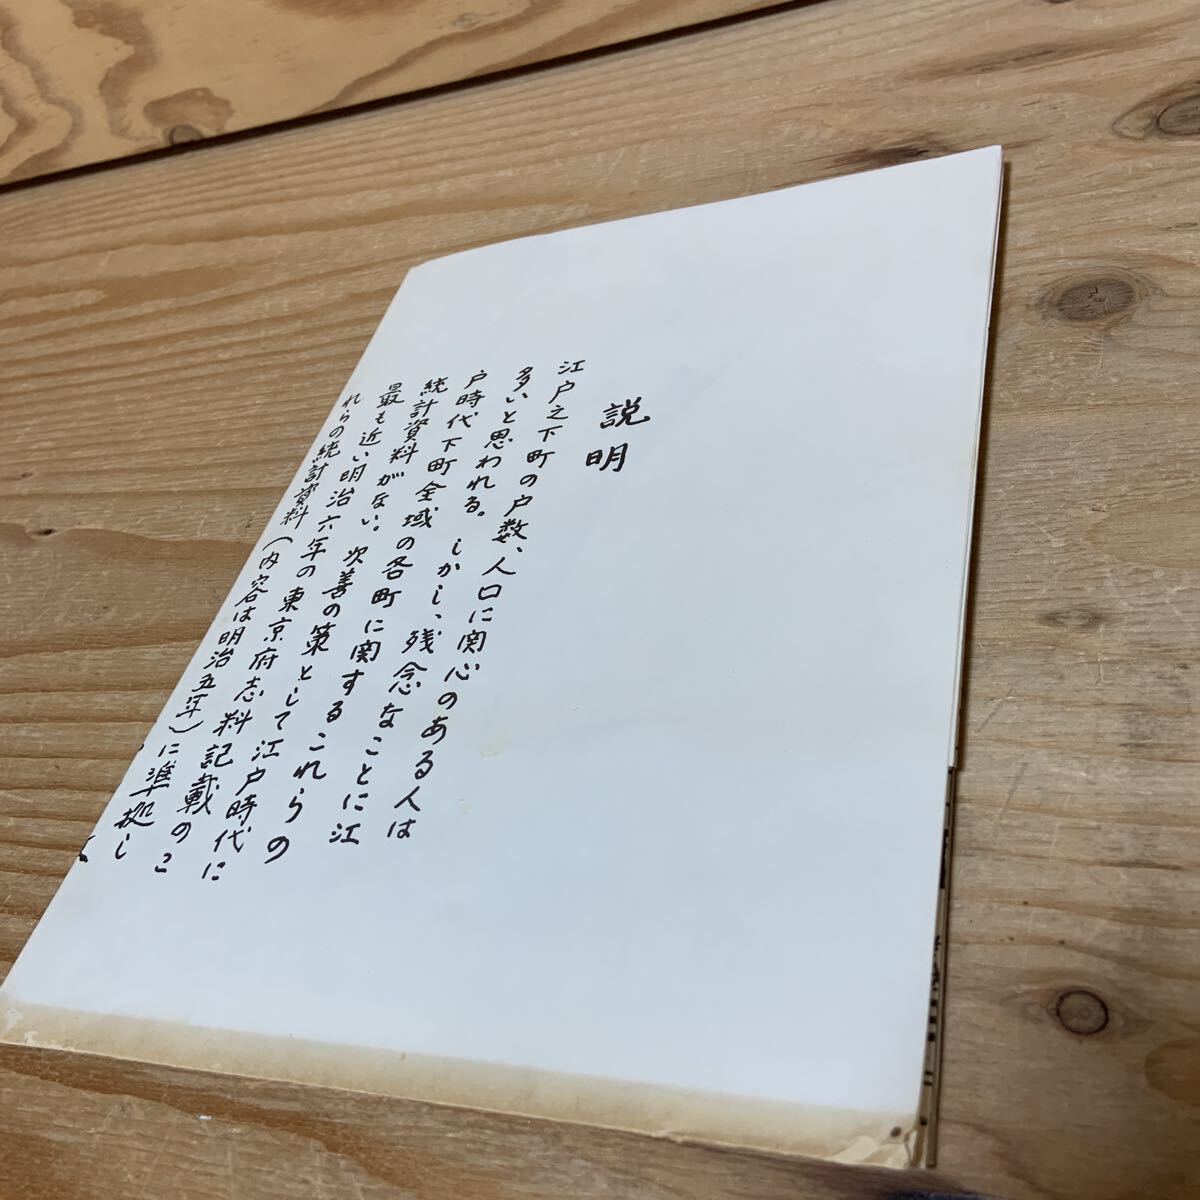 説明
江戸之下町の戸数、人口に関心のある人は
多いと思われる。しかし、残念なことに江
戸時代下町全域の各町に関するこれらの
統計資料がない。次善の策として江戸時代に
最も近い明治六年の東京府志料記載のこ
れらの統計資料(内容は明治五年)に準拠し